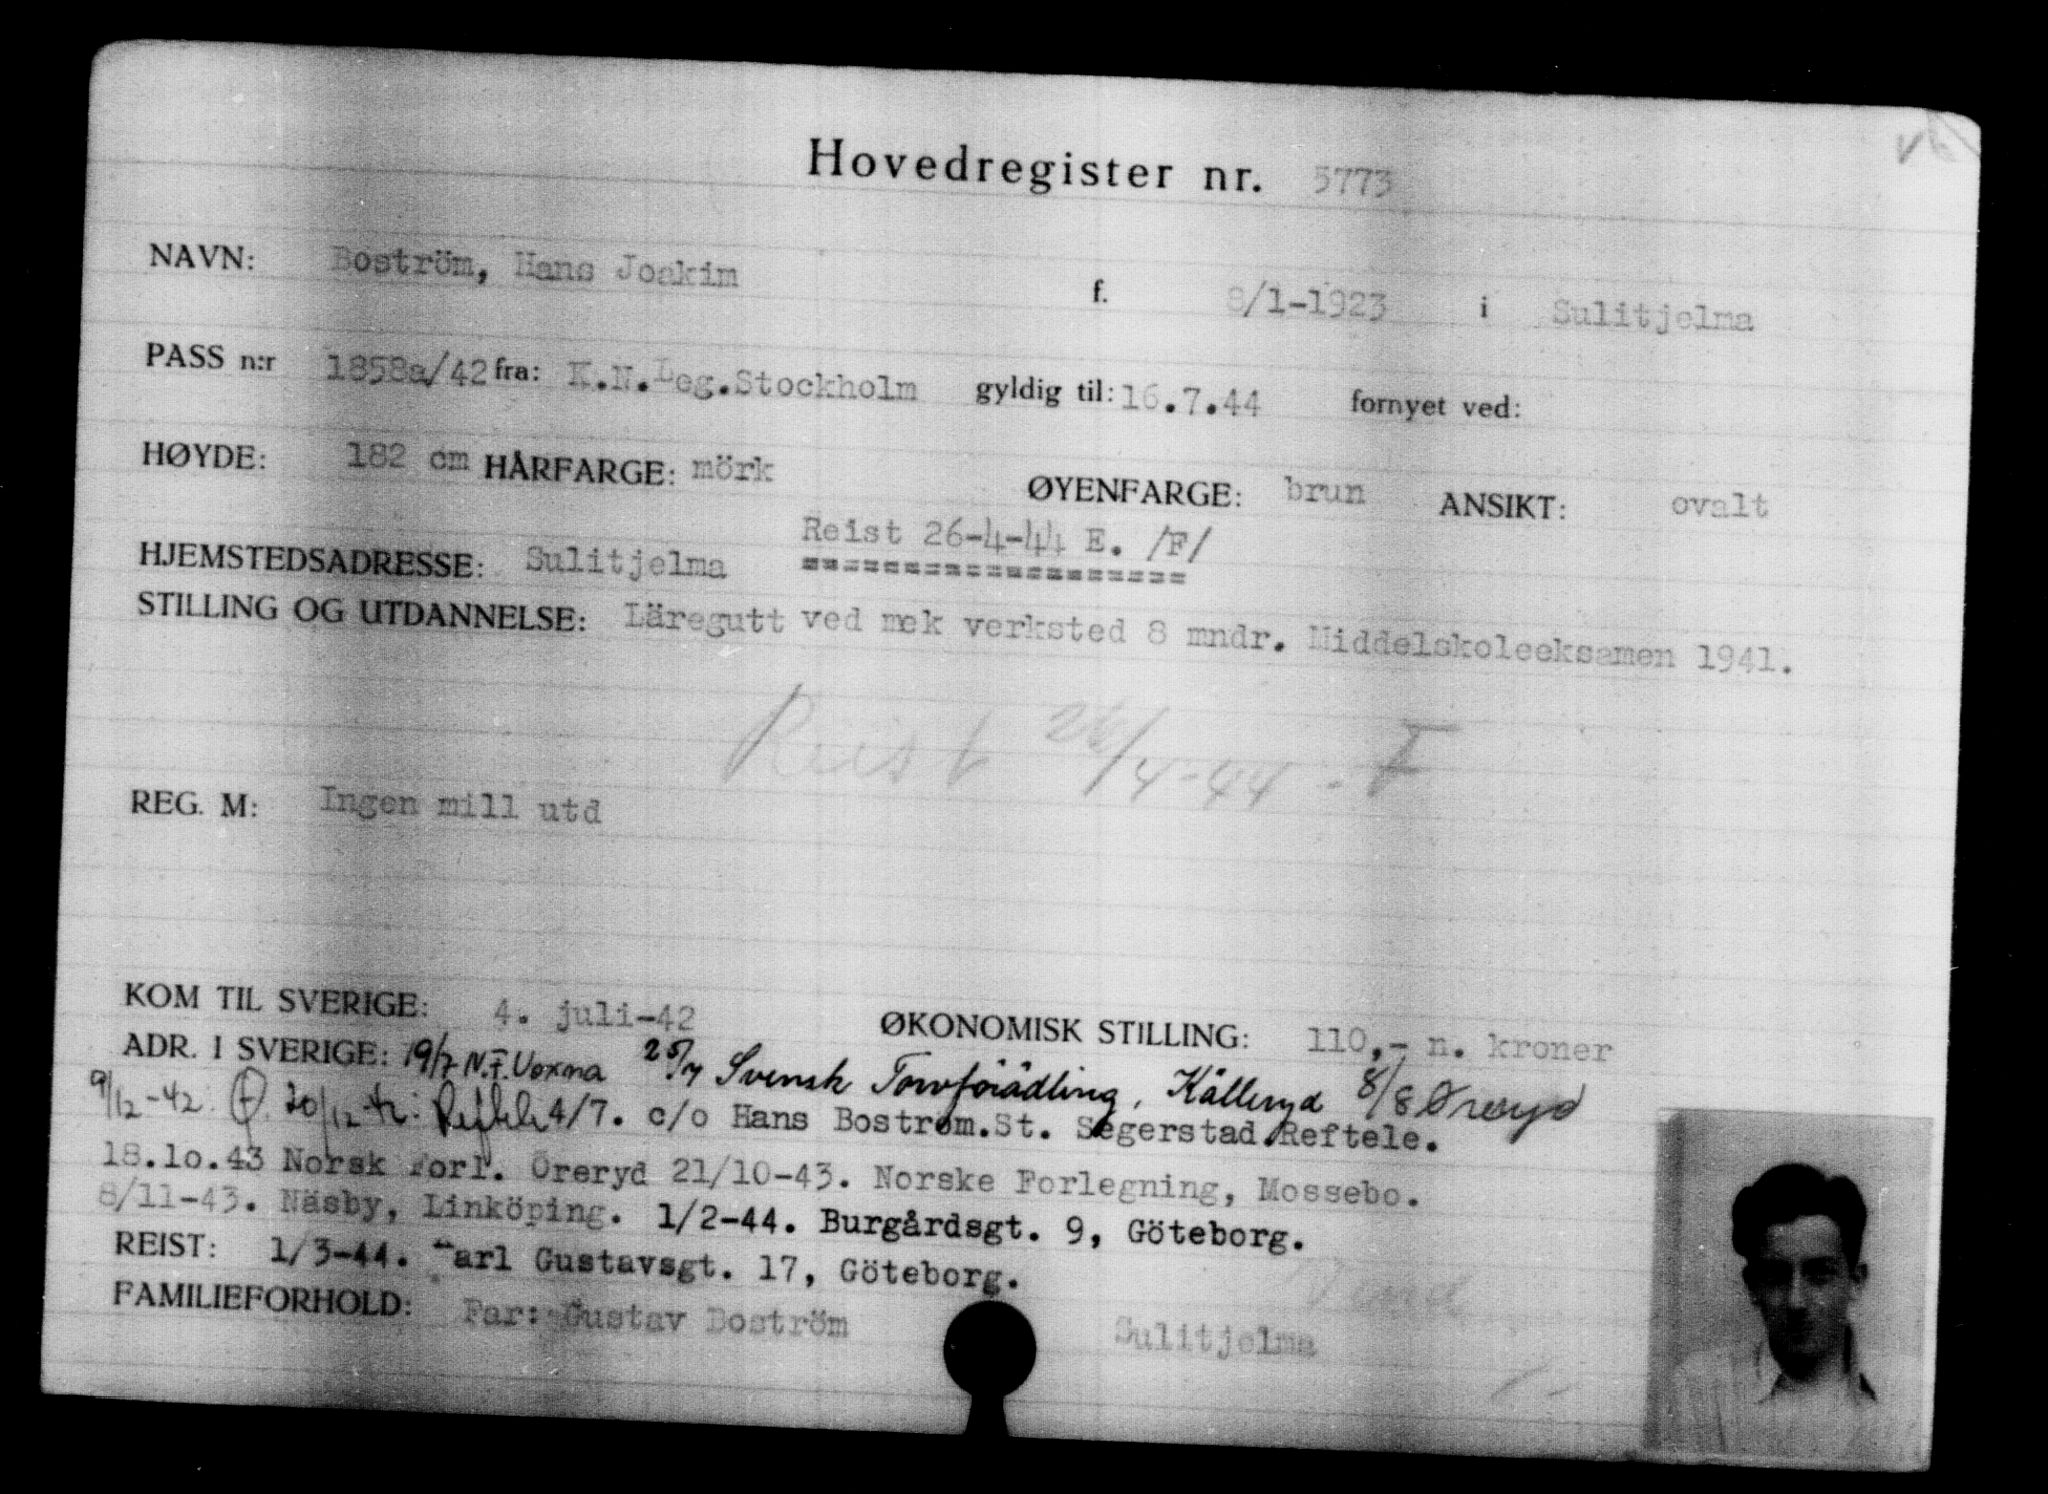 Hovedregister nr. 5773
NAVN: Boström, Hans Joakim f. 8/1-1923 i Sulitjelma
PASS n:r 1858a/42 fra: K.N.Leg.Stockholm gyldig til: 16.7.44 fornyet ved:
HØYDE: 182 cm HÅRFARGE: mörk ØYENFARGE: brun ANSIKT: ovalt
Reist 26-4-44 E. /F/
HJEMSTEDSADRESSE: Sulitjelma ===================
STILLING OG UTDANNELSE: Läregutt ved mek verksted 8 mndr. Middelskoleeksamen 1941.
Reist 26/4-44 - F
REG. M: Ingen mill utd
KOM TIL SVERIGE: 4. juli-42 ØKONOMISK STILLING: 110,- n. kroner
ADR. I SVERIGE: 19/7 N.F. Voxna 25/7 Svensk Torvförädling, Kålleryd 8/8 Øreryd
9/12-42. 20/12-42: Reftele 4/7. c/o Hans Boström.St. Segerstad.Reftele.
18.10.43 Norsk Forl. Öreryd 21/10-43. Norske Forlegning, Mossebo.
8/11-43. Näsby, Linköping. 1/2-44. Burgårdsgt. 9, Göteborg.
REIST: 1/3-44. Karl Gustavsgt. 17, Göteborg.
Vend
FAMILIEFORHOLD: Far: Gustav Boström Sulitjelma